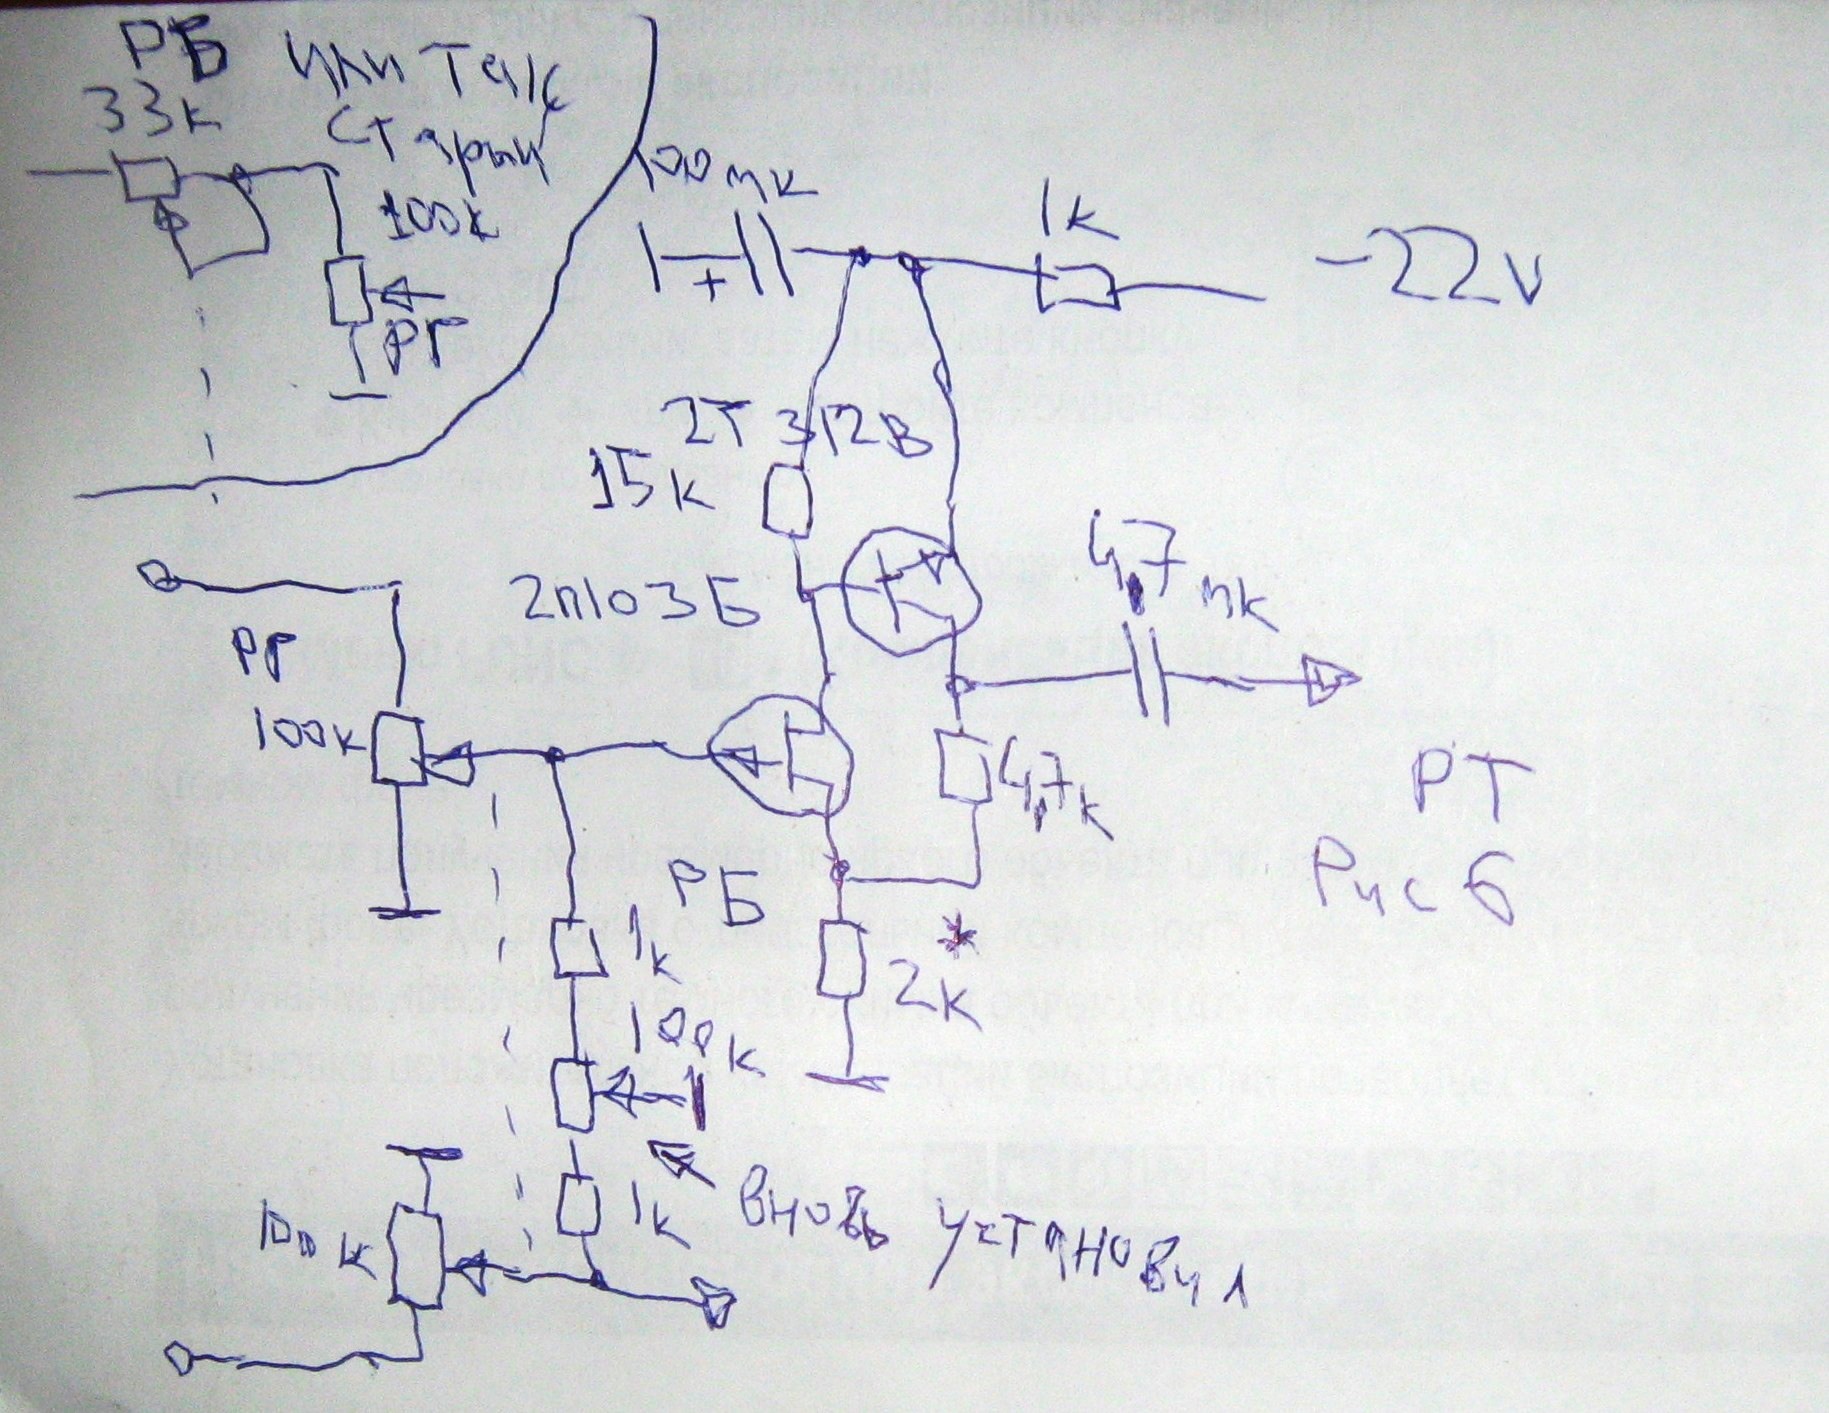 РБ или так
33к
старый
100к
РГ
100мк
+
1к
-22V
2Т312В
15к
4,7мк
2П103Б
РГ
100к
4,7к
РТ
РБ
Рис 6
1к
*
2к
100к
1к
вновь установил
100к